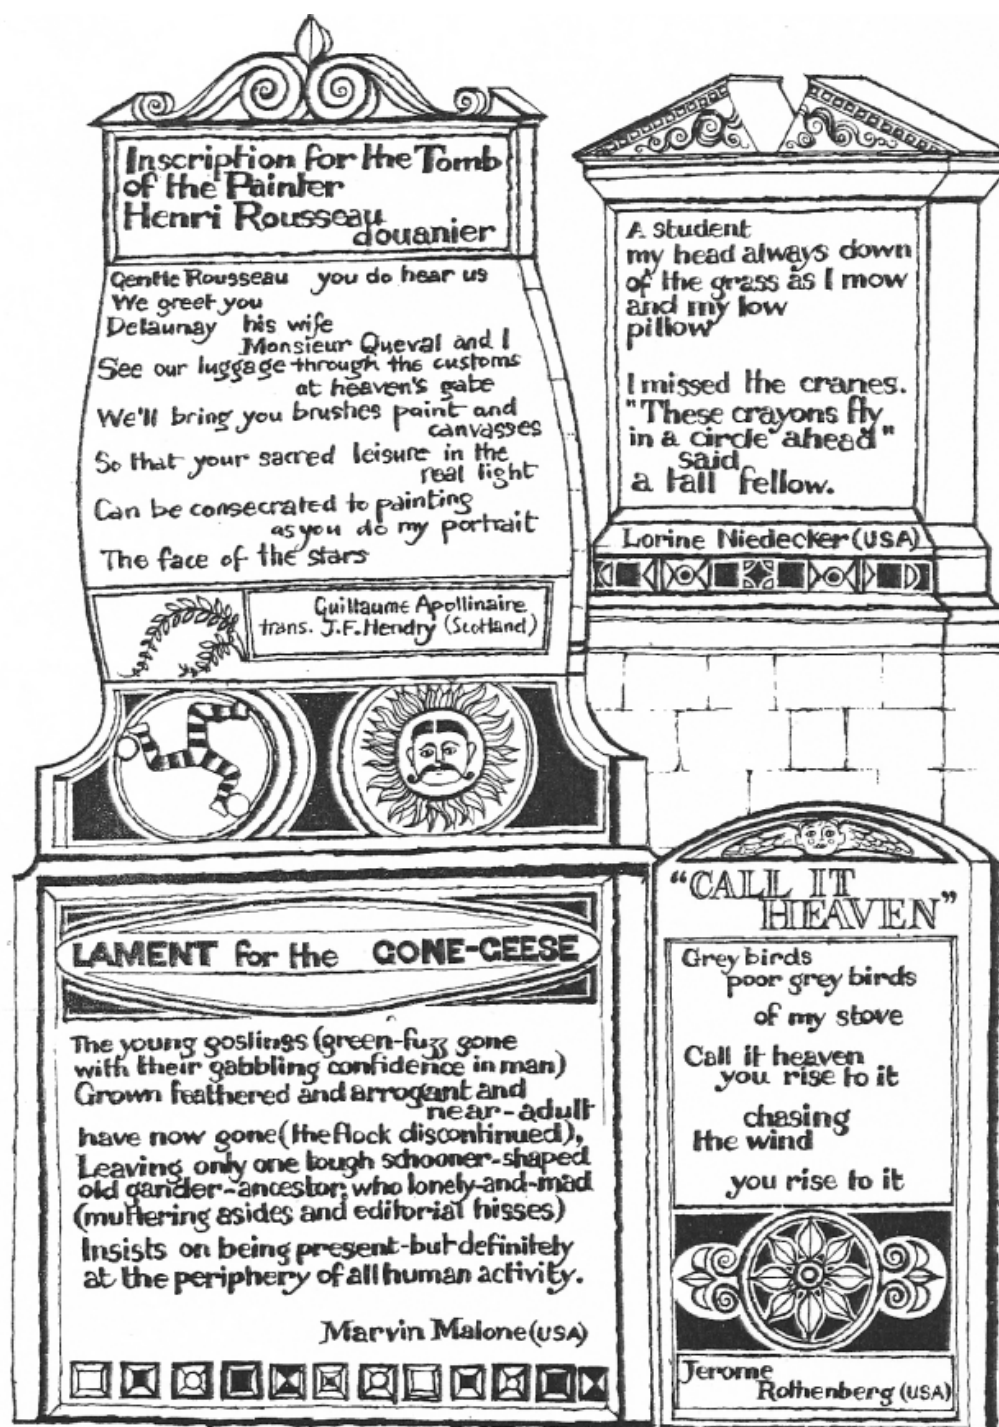 Inscription for the Tomb
of the Painter
Henri Rousseau
douanier
Gentle Rousseau you do hear us
We greet you
Delaunay his wife
Monsieur Queval and I
See our luggage through the customs
at heaven's gate
We'll bring you brushes paint and
canvasses
So that your sacred leisure in the
real light
Can be consecrated to painting
as you do my portrait
The face of the stars
Guillaume Apollinaire
trans. J.F. Hendry (Scotland)
A student
my head always down
of the grass as I mow
and my low
pillow
I missed the cranes.
"These crayons fly
in a circle ahead"
said
a tall fellow.
Lorine Niedecker (USA)
LAMENT for the GONE-GEESE
The young goslings (green-fuzz gone
with their gabbling confidence in man)
Grown feathered and arrogant and
near-adult
have now gone (the flock discontinued),
Leaving only one tough schooner-shaped
old gander-ancestor, who lonely-and-mad
(muttering asides and editorial hisses)
Insists on being present-but definitely
at the periphery of all human activity.
Marvin Malone (USA)
"CALL IT
HEAVEN"
Grey birds
poor grey birds
of my stove
Call it heaven
you rise to it
chasing
the wind
you rise to it
Jerome
Rothenberg (USA)